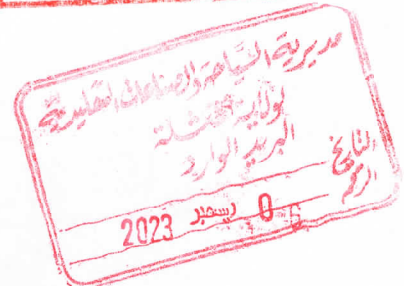 مديرية السياحة والصناعات التقليدية
لولاية خنشلة
البريد الوارد
التاريخ
06 ديسمبر 2023
الرقم